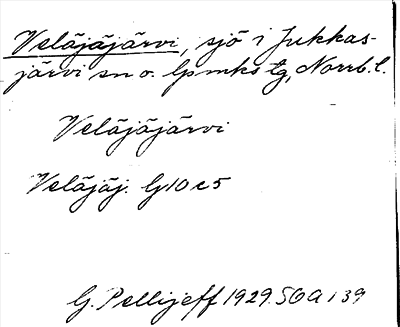 Veläjäjärvi, sjö i Jukkas-
järvi sn o. lpmks tg, Norrb. l.
Veläjäjärvi
Veläjäj. G10c5
G. Pellijeff 1929. SOA 139